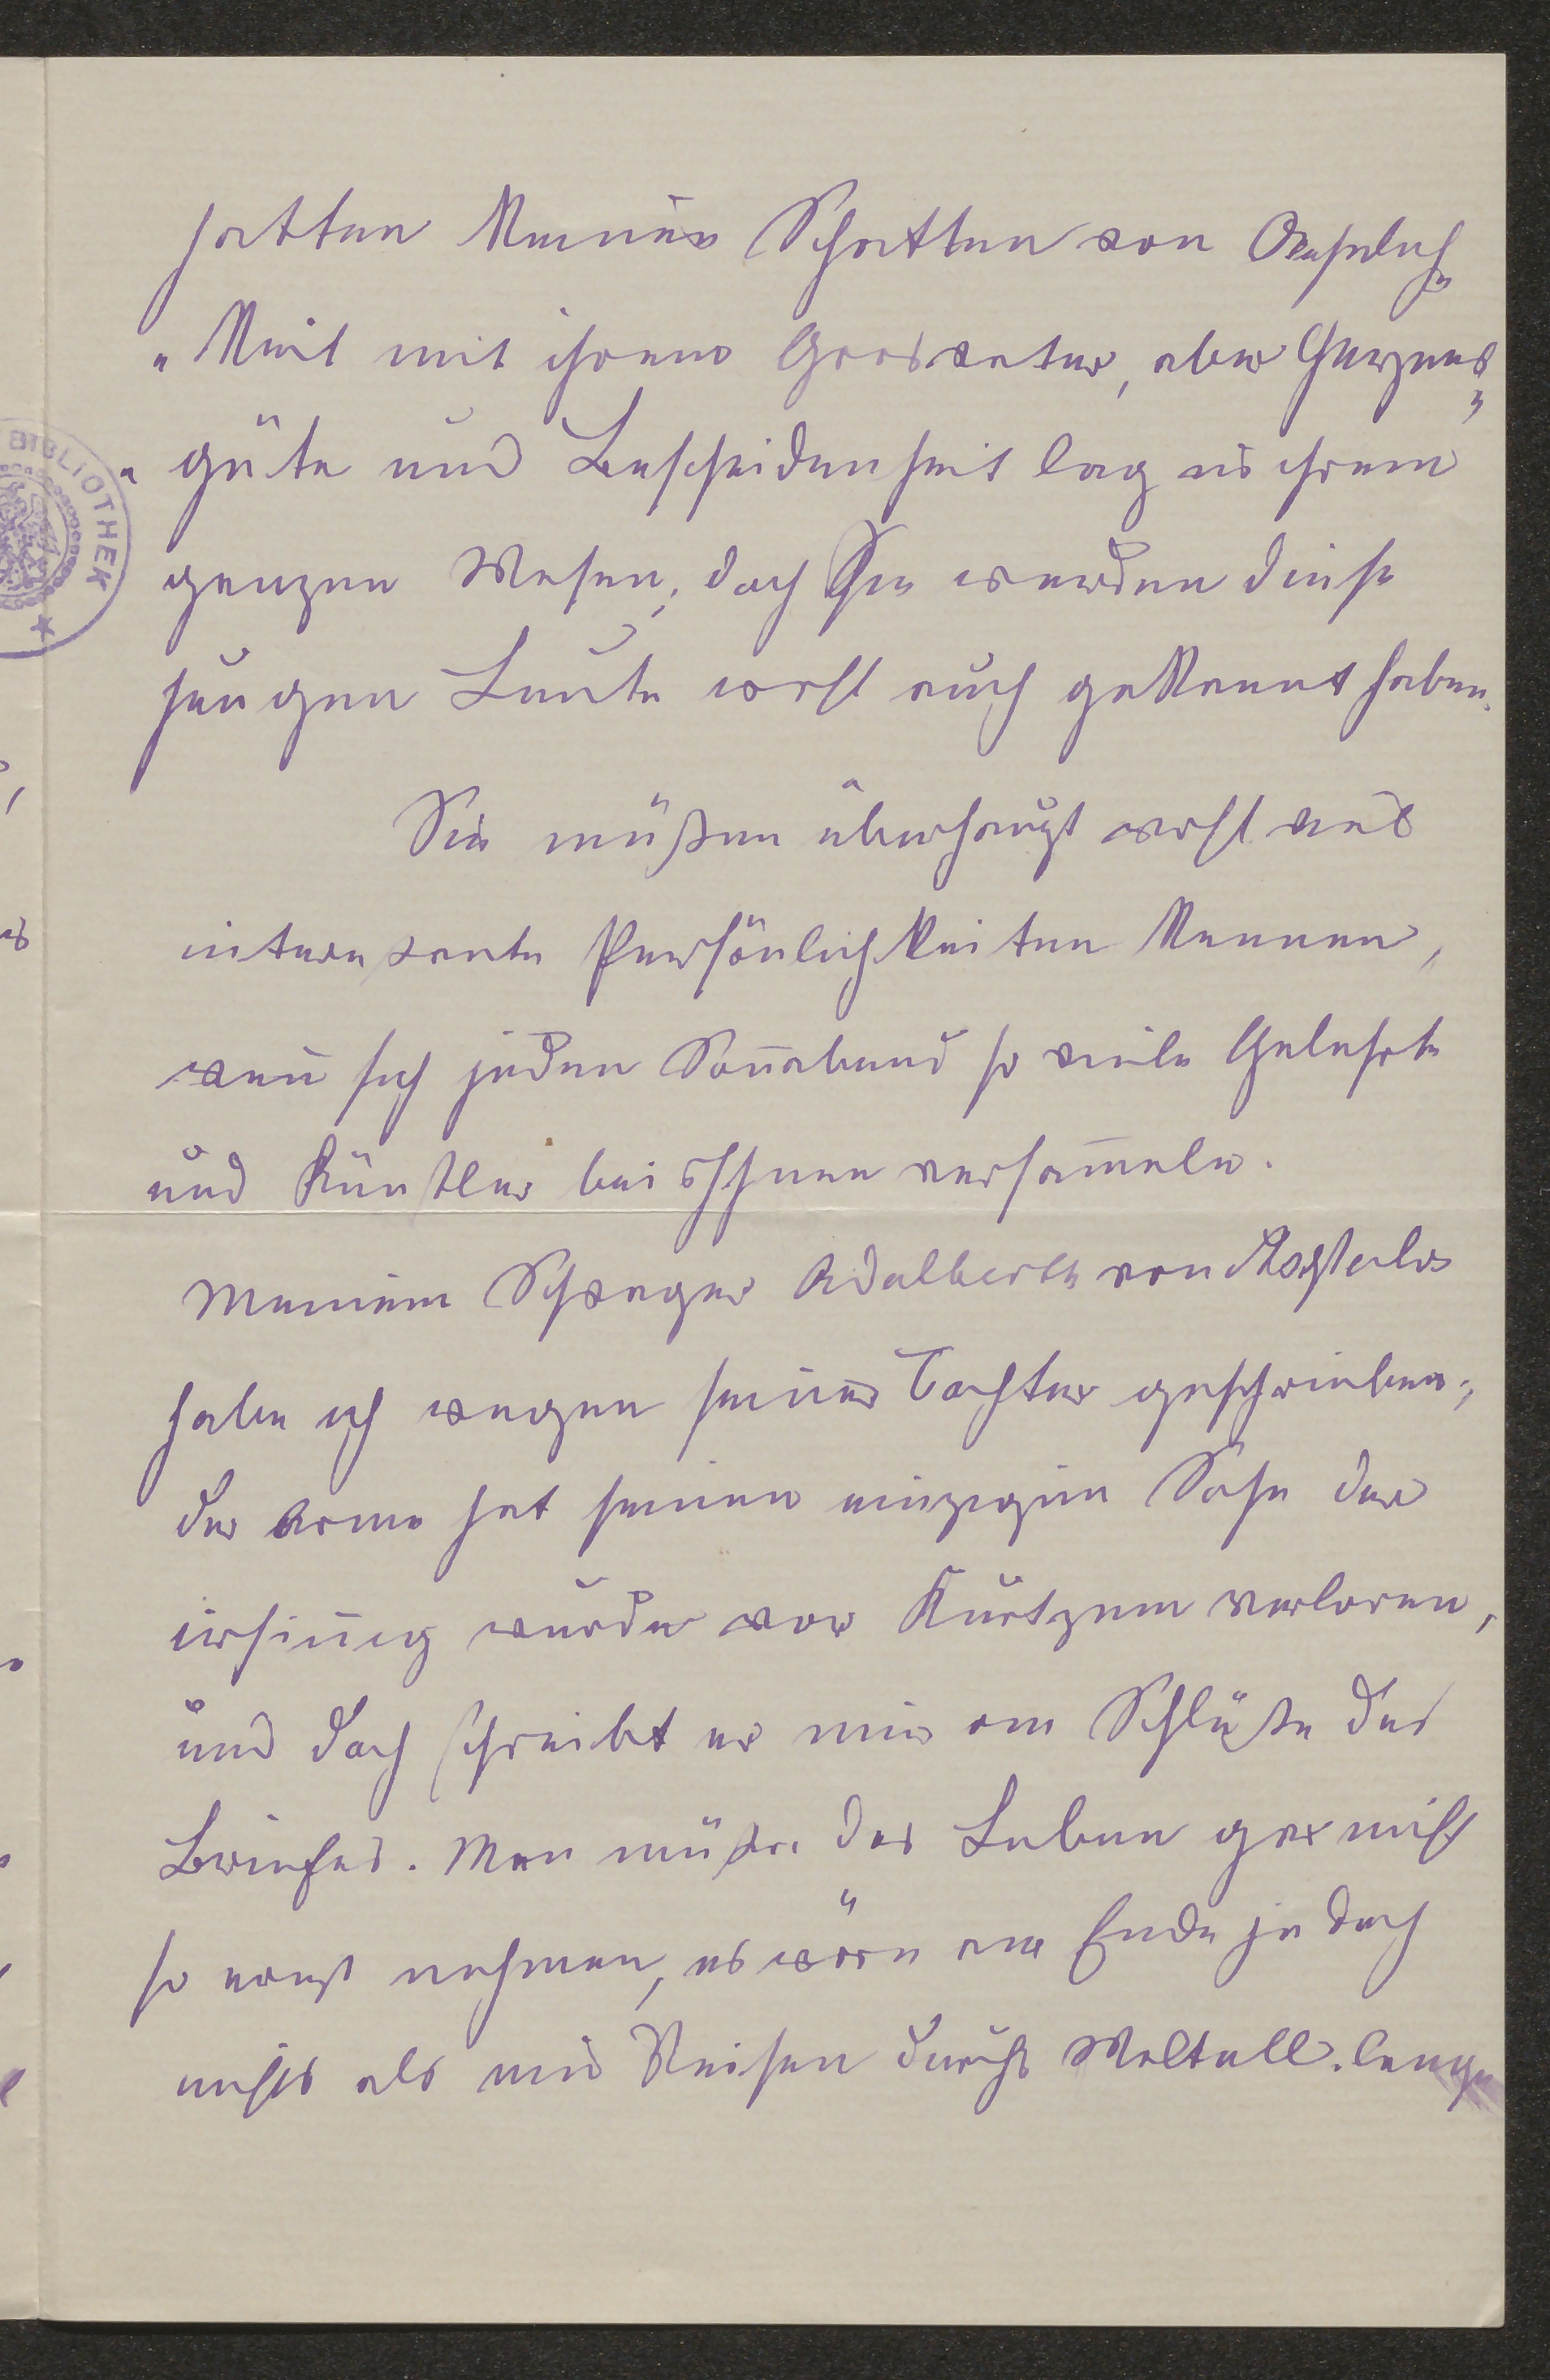 hatten keinen Schatten von Aehnlich„
„keit mit ihrem Grosvater, aber Herzens„
„güte und Bescheidenheit lag in ihrem
ganzen Wesen, doch Sie werden diese
jungen Leute wohl auch gekannt haben.
Sie müßen überhaupt wohl viel
interessante Persönlichkeiten kennen,
wen̄ sich jeden Son̄abend so viele Gelehrte
und Künstler bei Ihnen versam̄eln.
Meinem Schwager Adalbert von
habe ich wegen seiner Tochter geschrieben;
der Arme hat seinen einzigen Sohn der
irsin̄ig wurde vor Kurtzem verloren,
und doch schreibt er mir am Schluße des
Briefes. Man müße das Leben gar nicht
so ernst nehmen, es wäre am Ende ja doch
nichts als ein Reisen durchs Weltall. lange
BIBLIOTHEK